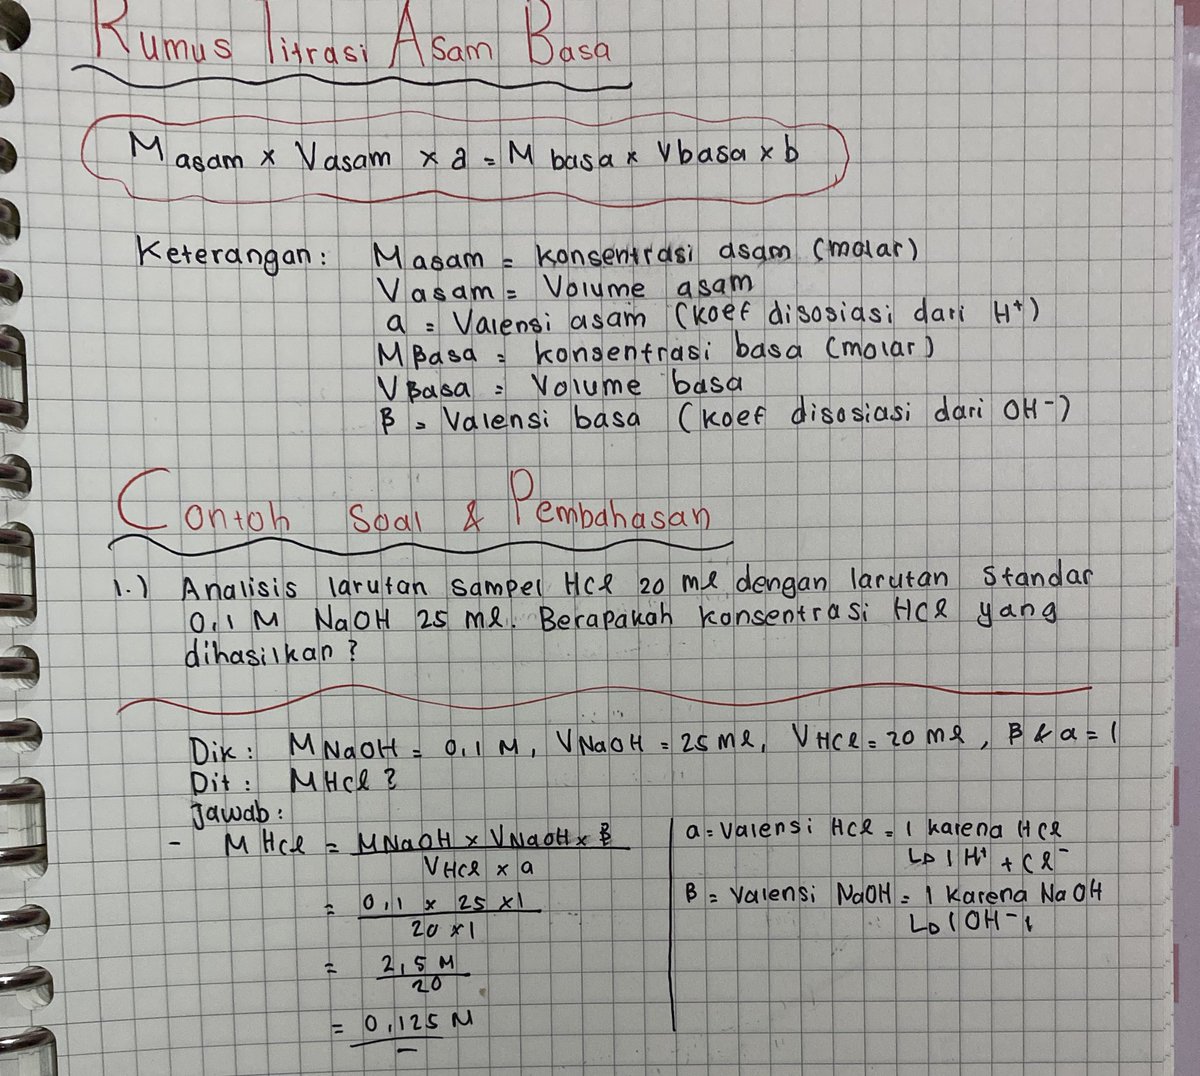 Rumus Titrasi Asam Basa
M asam x Vasam x a = M basa x Vbasa x b
Keterangan : M asam = konsentrasi asam (molar)
V asam = Volume asam
a = Valensi asam (koef disosiasi dari H⁺)
M Basa = konsentrasi basa (molar)
V Basa = Volume basa
β = Valensi basa (koef disosiasi dari OH⁻)
Contoh Soal & Pembahasan
1.) Analisis larutan sampel HCl 20 ml dengan larutan standar
0,1 M NaOH 25 ml. Berapakah konsentrasi HCl yang
dihasilkan ?
Dik : M NaOH = 0,1 M, V NaOH = 25 ml, V HCl = 20 ml, β & a = 1
Dit : M HCl ?
Jawab :
- M HCl = M NaOH x V NaOH x β
V HCl x a
= 0,1 x 25 x 1
20 x 1
= 2,5 M
20
= 0,125 M
a = Valensi HCl = 1 karena HCl
↳ 1 H⁺ + Cl⁻
β = Valensi NaOH = 1 karena NaOH
↳ 1 OH⁻